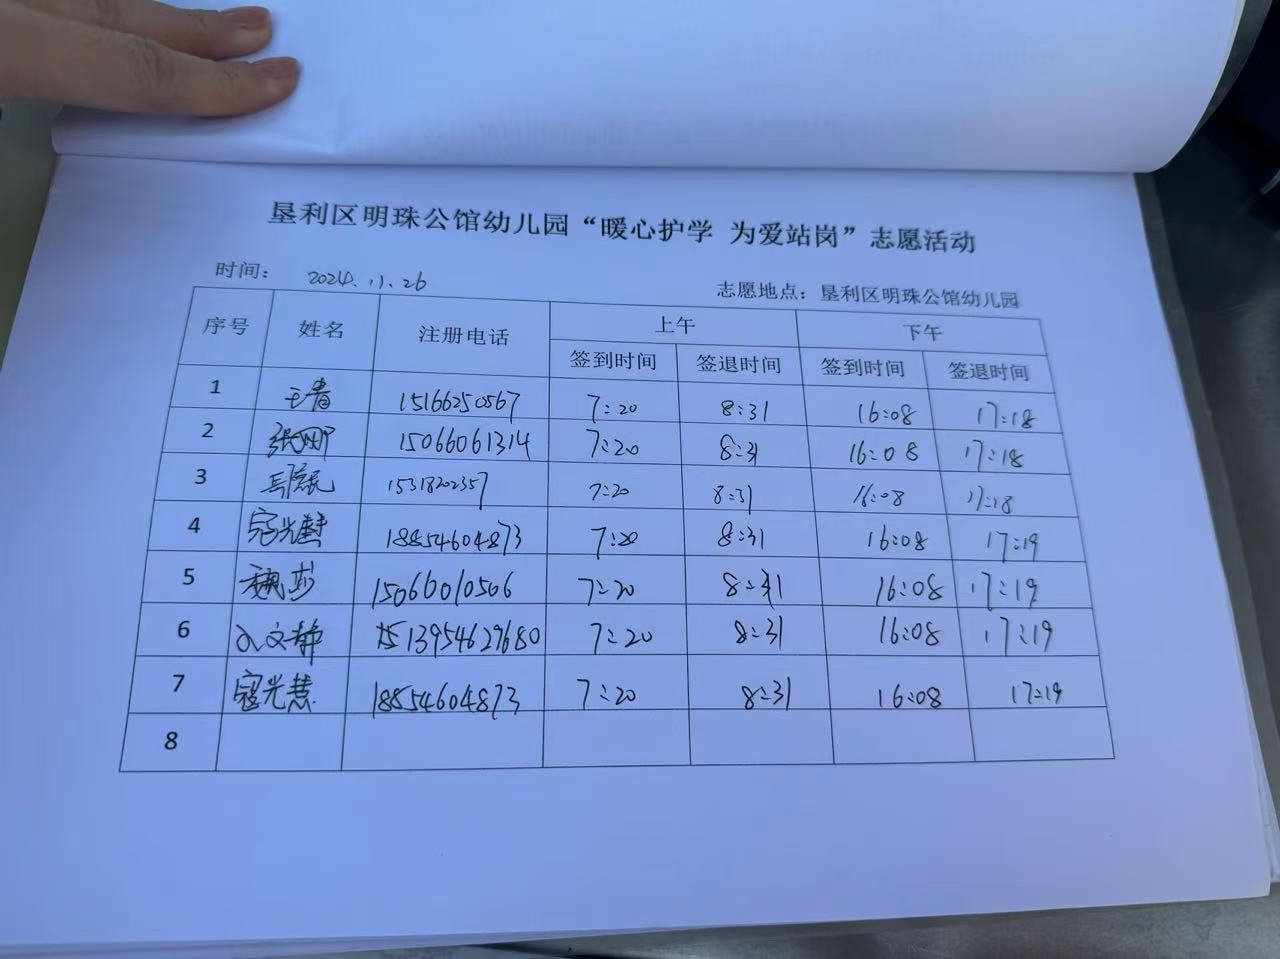 垦利区明珠公馆幼儿园“暖心护学 为爱站岗”志愿活动
时间： 2024.11.26 志愿地点：垦利区明珠公馆幼儿园
序号 姓名 注册电话 上午 下午
签到时间 签退时间 签到时间 签退时间
1 王青 15166250567 7:20 8:31 16:08 17:18
2 15066061314 7:20 8:31 16:08 17:18
3 15318202357 7:20 8:31 16:08 17:18
4 寇光慧 18854604873 7:20 8:31 16:08 17:19
5 魏莎 15066010506 7:20 8:31 16:08 17:19
6 文静 13954629680 7:20 8:31 16:08 17:19
7 寇光慧 18854604873 7:20 8:31 16:08 17:19
8